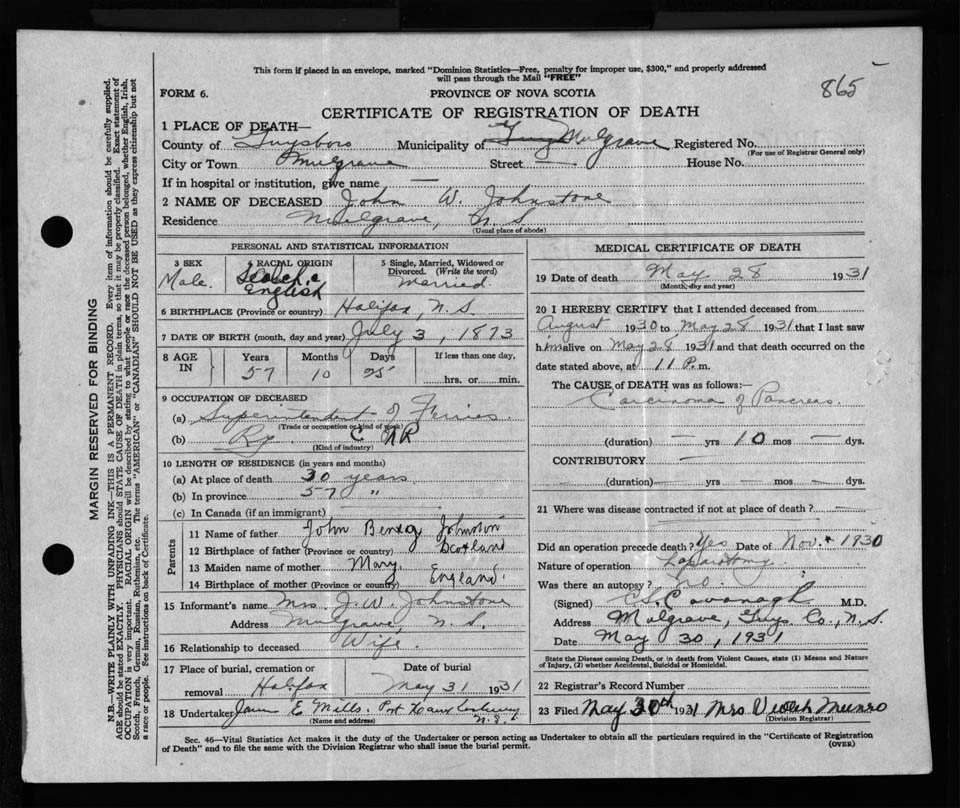 This form if placed in an envelope, marked "Dominion Statistics—Free, penalty for improper use, $300," and properly addressed
will pass through the Mail "FREE"
865
FORM 6. PROVINCE OF NOVA SCOTIA
CERTIFICATE OF REGISTRATION OF DEATH
1 PLACE OF DEATH—
County of Guysboro Municipality of Mulgrave Registered No.
(For use of Registrar General only)
City or Town Mulgrave Street — House No.
If in hospital or institution, give name —
2 NAME OF DECEASED John W. Johnstone
Residence Mulgrave, N S
(Usual place of abode)
PERSONAL AND STATISTICAL INFORMATION
3 SEX 4 RACIAL ORIGIN 5 Single, Married, Widowed or Divorced. (Write the word)
Male. English Married.
6 BIRTHPLACE (Province or country) Halifax, N. S.
7 DATE OF BIRTH (month, day and year) July 3, 1873
8 AGE IN Years Months Days If less than one day,
57 10 25 hrs. or min.
9 OCCUPATION OF DECEASED
(a) Superintendent of Ferries
(Trade or occupation or kind of work)
(b) Ry. C N R
(Kind of industry)
10 LENGTH OF RESIDENCE (in years and months)
(a) At place of death 30 years
(b) In province 57 "
(c) In Canada (if an immigrant)
Parents
11 Name of father John Johnston
12 Birthplace of father (Province or country) Scotland
13 Maiden name of mother Mary
14 Birthplace of mother (Province or country) England.
15 Informant's name Mrs. J. W. Johnstone
Address Mulgrave, N. S.
16 Relationship to deceased Wife.
17 Place of burial, cremation or Date of burial
removal Halifax May 31 1931
18 Undertaker E Mills. Port
(Name and address) N. S.
MEDICAL CERTIFICATE OF DEATH
19 Date of death May 28 1931
(Month, day and year)
20 I HEREBY CERTIFY that I attended deceased from
August 1930 to May 28 1931 that I last saw
him alive on May 28 1931 and that death occurred on the
date stated above, at 11 P. m.
The CAUSE of DEATH was as follows:—
Carcinoma of Pancreas.
(duration) — yrs 10 mos — dys.
CONTRIBUTORY —
(duration) — yrs — mos — dys.
21 Where was disease contracted if not at place of death? —
Did an operation precede death? Yes Date of Nov. 1930
Nature of operation Laparotomy
Was there an autopsy? No
(Signed) Cavanagh M.D.
Address Mulgrave, Guys. Co., N. S.
Date May 30, 1931
State the Disease causing Death, or in death from Violent Causes, state (1) Means and Nature
of Injury, (2) whether Accidental, Suicidal or Homicidal.
22 Registrar's Record Number
23 Filed May 30th 1931 Mrs Munro
(Division Registrar)
Sec. 46—Vital Statistics Act makes it the duty of the Undertaker or person acting as Undertaker to obtain all the particulars required in the "Certificate of Registration
of Death" and to file the same with the Division Registrar who shall issue the burial permit. (OVER)
MARGIN RESERVED FOR BINDING
N.B.—WRITE PLAINLY WITH UNFADING INK—THIS IS A PERMANENT RECORD. Every item of information should be carefully supplied.
AGE should be stated EXACTLY. PHYSICIANS should STATE CAUSE OF DEATH in plain terms, so that it may be properly classified. Exact statement of
OCCUPATION is very important. RACIAL ORIGIN will be described by stating to what people or race the deceased person belonged, whether English, Irish,
Scotch, French, German, Russian, Ruthenian, etc. The terms "AMERICAN" or "CANADIAN" SHOULD NOT BE USED as they express citizenship but not
a race or people. See instructions on back of Certificate.